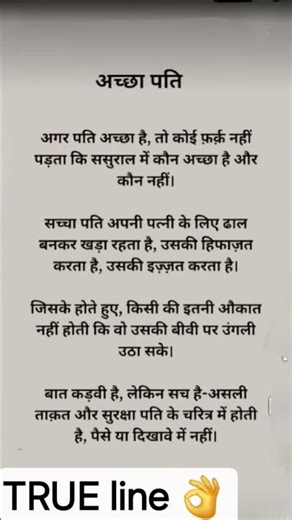 अच्छा पति
अगर पति अच्छा है, तो कोई फ़र्क़ नहीं
पड़ता कि ससुराल में कौन अच्छा है और
कौन नहीं।
सच्चा पति अपनी पत्नी के लिए ढाल
बनकर खड़ा रहता है, उसकी हिफाज़त
करता है, उसकी इज़्ज़त करता है।
जिसके होते हुए, किसी की इतनी औकात
नहीं होती कि वो उसकी बीवी पर उंगली
उठा सके।
बात कड़वी है, लेकिन सच है-असली
ताक़त और सुरक्षा पति के चरित्र में होती
है, पैसे या दिखावे में नहीं।
TRUE line 👌